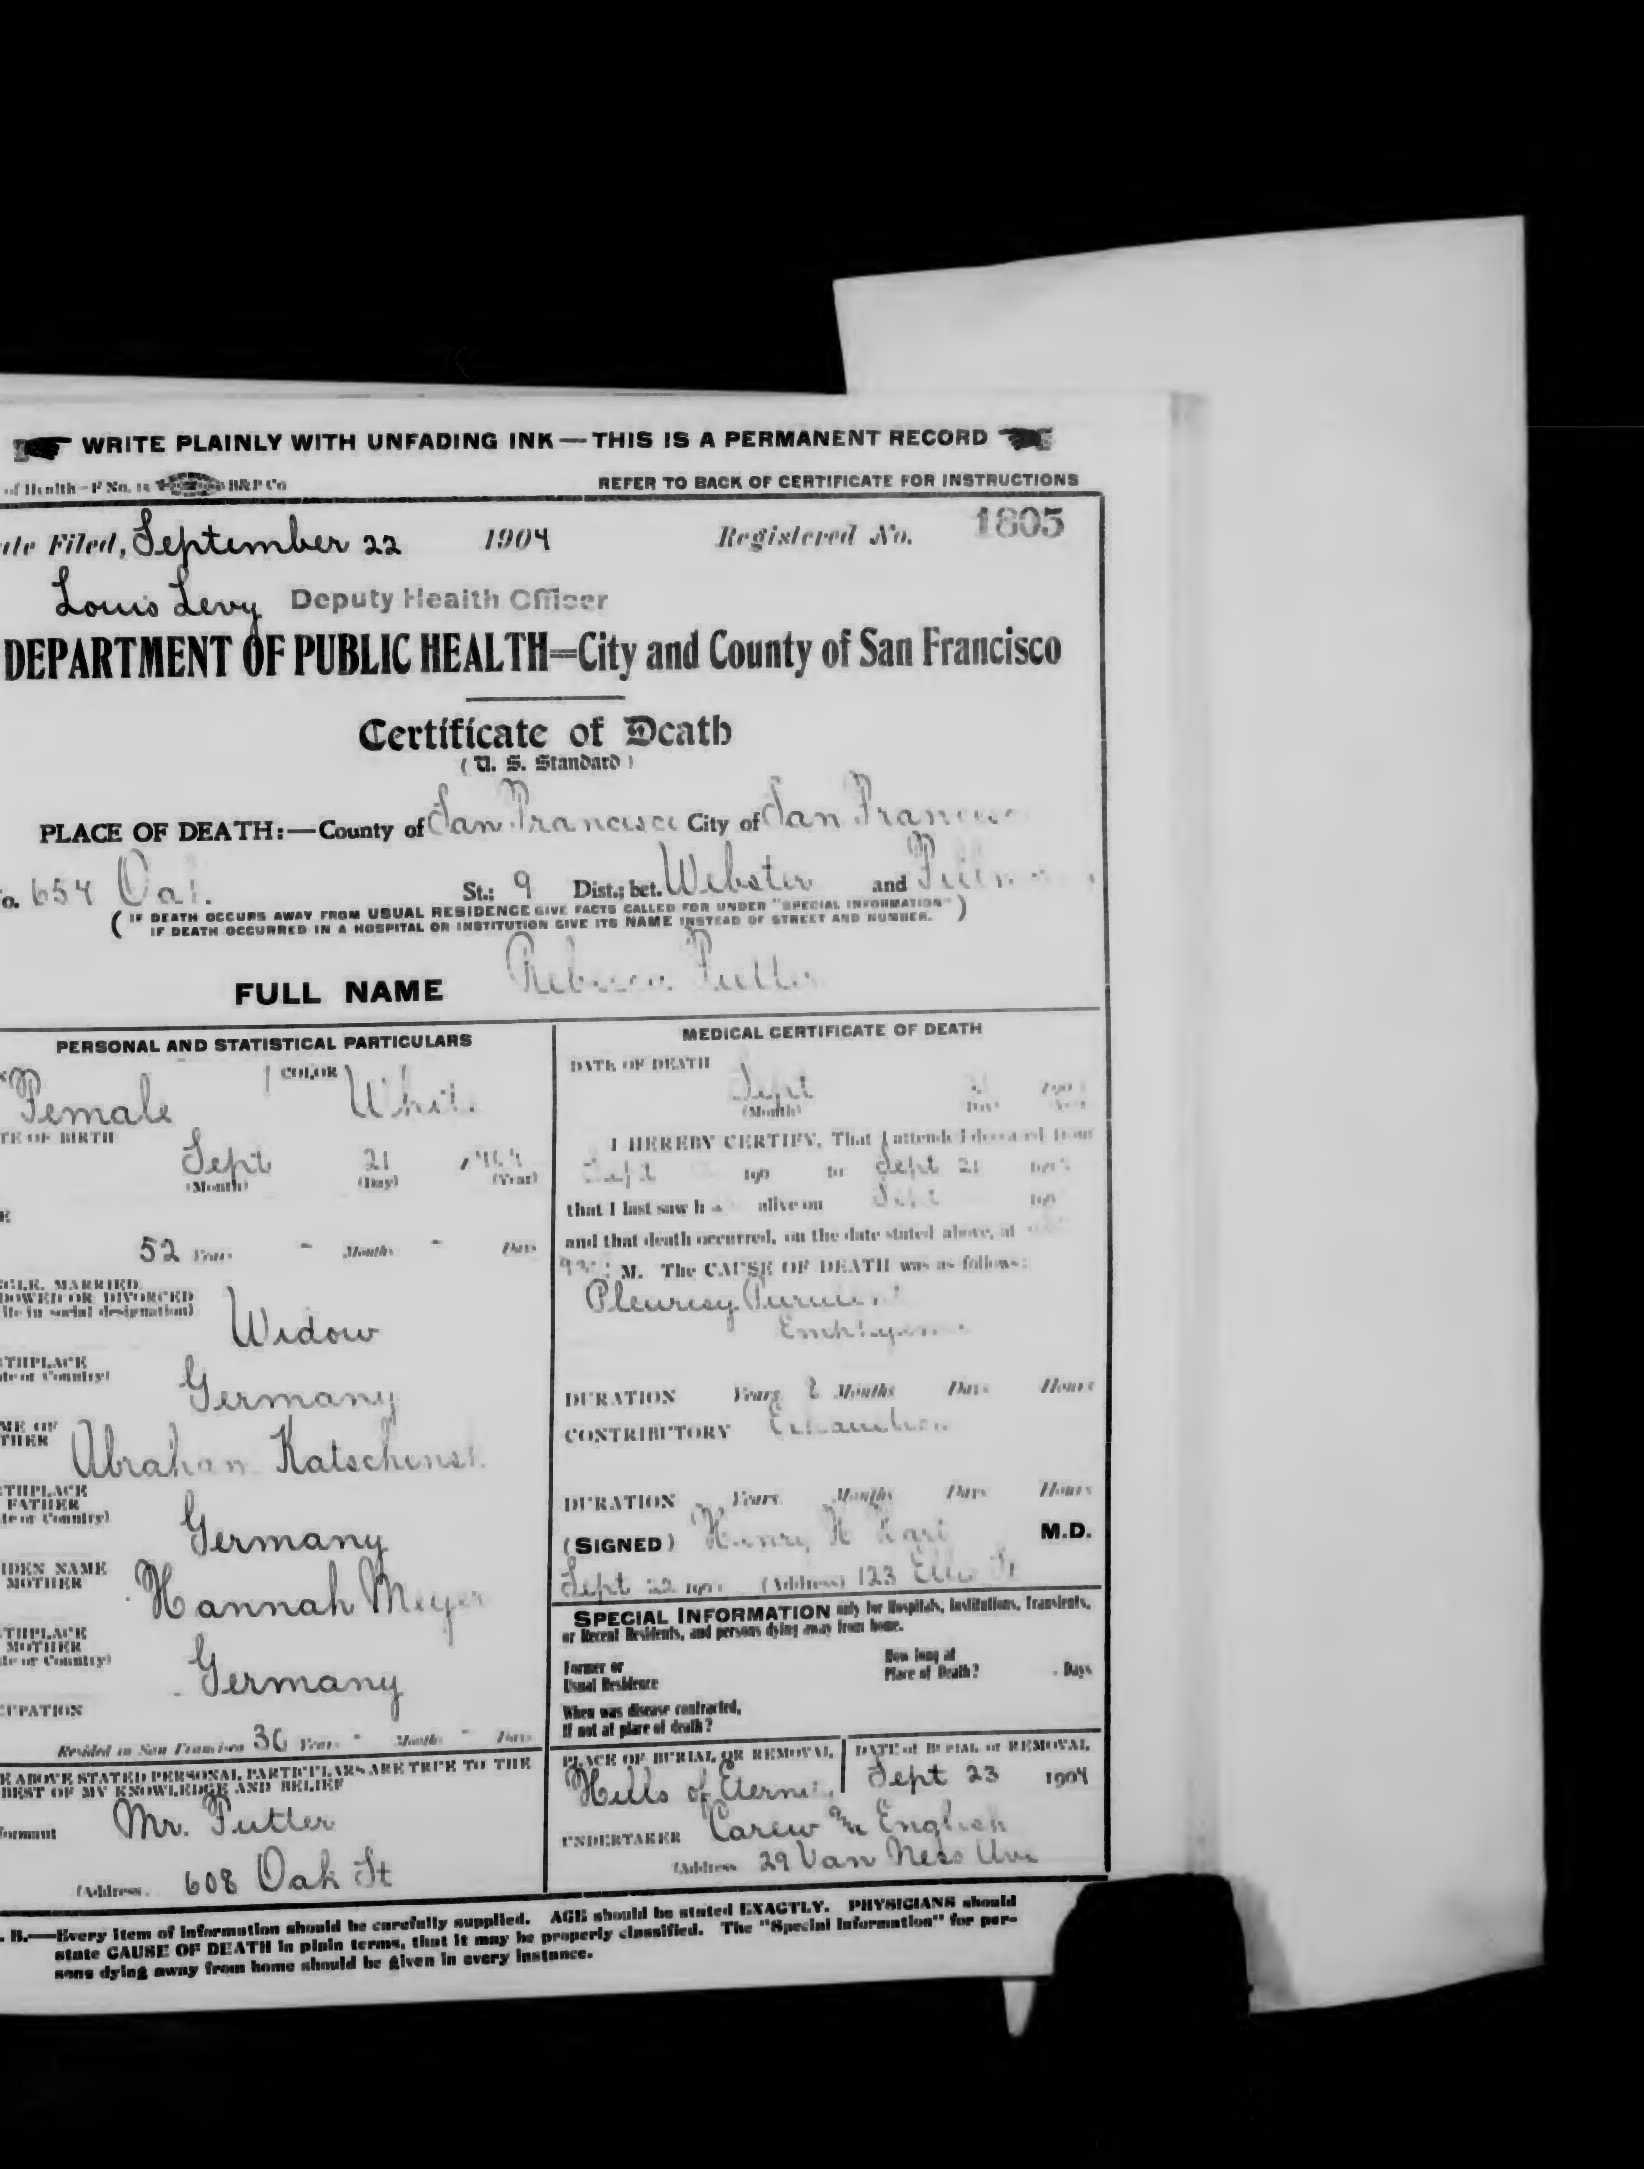 WRITE PLAINLY WITH UNFADING INK — THIS IS A PERMANENT RECORD
of Health—F No. 15 B&P Co REFER TO BACK OF CERTIFICATE FOR INSTRUCTIONS
Filed, September 22 1904 Registered No. 1805
Louis Levy Deputy Health Officer
DEPARTMENT OF PUBLIC HEALTH=City and County of San Francisco
Certificate of Death
(U. S. Standard)
PLACE OF DEATH:—County of San Francisco City of San Francisco
654 Oak St.; 9 Dist.; bet. Webster and
(IF DEATH OCCURS AWAY FROM USUAL RESIDENCE GIVE FACTS CALLED FOR UNDER "SPECIAL INFORMATION"
IF DEATH OCCURRED IN A HOSPITAL OR INSTITUTION GIVE ITS NAME INSTEAD OF STREET AND NUMBER.)
FULL NAME
PERSONAL AND STATISTICAL PARTICULARS
COLOR
Female White
OF BIRTH
Sept 21
(Month) (Day) (Year)
52 Years - Months - Days
MARRIED,
OR DIVORCED
in social designation)
Widow
or Country)
Germany
OF
Abraham
FATHER
or Country)
Germany
NAME
MOTHER
Hannah Meyer
MOTHER
or Country)
Germany
Resided in San Francisco 36 Years - Months - Days
ABOVE STATED PERSONAL PARTICULARS ARE TRUE TO THE
BEST OF MY KNOWLEDGE AND BELIEF
Mr. Futter
(Address 608 Oak St
MEDICAL CERTIFICATE OF DEATH
DATE OF DEATH
Sept
(Month) (Day)
I HEREBY CERTIFY, That I attended deceased from
Sept 190 to Sept 21
that I last saw h alive on Sept 190
and that death occurred, on the date stated above, at
M. The CAUSE OF DEATH was as follows:
Pleurisy
DURATION Years Months Days Hours
CONTRIBUTORY Exhaustion
DURATION Years Months Days Hours
(SIGNED) Henry M.D.
Sept 22 190 (Address) 123 Ellis St
SPECIAL INFORMATION only for Hospitals, Institutions, Transients,
or Recent Residents, and persons dying away from home.
Former or
Usual Residence
How long at
Place of Death? Days
When was disease contracted,
If not at place of death?
PLACE OF BURIAL OR REMOVAL
Hills of Eternity
DATE of BURIAL or REMOVAL
Sept 23 1904
UNDERTAKER Carew & English
(Address 29 Van Ness Ave
B.—Every item of information should be carefully supplied. AGE should be stated EXACTLY. PHYSICIANS should
state CAUSE OF DEATH in plain terms, that it may be properly classified. The "Special Information" for per-
sons dying away from home should be given in every instance.